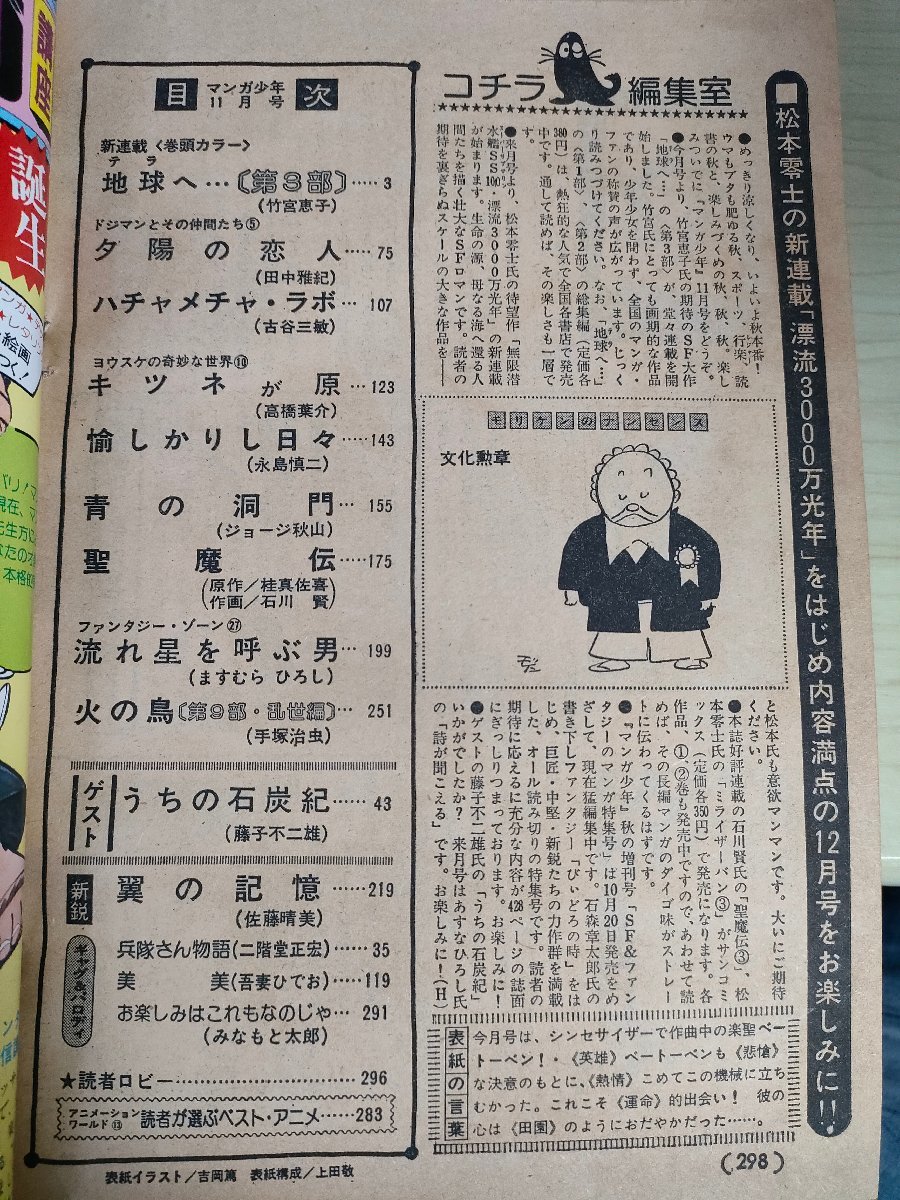 ■松本零士の新連載「漂流3000万光年」をはじめ内容満点の12月号をお楽しみに!!
コチラ編集室
●めっきり涼しくなり、いよいよ秋本番！
ウマもブタも肥ゆる秋、スポーツ、行楽、読
書の秋と、楽しみづくめの秋、秋。楽し
みついでに『マンガ少年』11月号をどうぞ。
●今月号より、竹宮恵子氏の期待のSF大作
「地球へ…」の〈第3部〉が、堂々連載を開
始しました。竹宮氏にとっても画期的な作品
であり、少年少女を問わず、全国のマンガ・
ファンの称賛の声が広がっています。じっく
り読みつづけてください。なお、「地球へ…」
の〈第1部〉、〈第2部〉の総集編（定価各
380円）は、熱狂的な人気で全国各書店で発売
中です。通して読めば、その楽しさも一層で
す。
●来月号より、松本零士氏の待望作「無限潜
水艦SS100・漂流3000万光年」の新連載
が始まります。生命の源、母なる海へ還る人
間たちを描く壮大なSFロマンです。読者の
期待を裏ぎらぬスケールの大きな作品を――
モリケンのナンセンス
文化勲章
と松本氏も意欲マンマンです。大いにご期待
ください。
●本誌好評連載の石川賢氏の「聖魔伝③」、松
本零士氏の「ミライザーバン③」がサンコミ
ックス（定価各350円）で発売になります。各
作品、①、②巻も発売中ですので、あわせて読
めば、その長編マンガのダイゴ味がストレー
トに伝わってくるはずです。
●『マンガ少年』秋の増刊号「SF&ファン
タジーのマンガ特集号」は10月20日発売をめ
ざして、現在猛編集中です。石森章太郎氏の
書き下しファンタジー「びいどろの時」をは
じめ、巨匠・中堅・新鋭たちの力作群を満載
した、オール読み切りの特集号です。読者の
期待に応えるに充分な内容が428ページの誌面
にぎっしりつまっております。お楽しみに！
●ゲストの藤子不二雄氏の「うちの石炭紀」
いかがでしたか？　来月号はあすなひろし氏
の「詩が聞こえる」です。お楽しみに！（H）
表紙の言葉
今月号は、シンセサイザーで作曲中の楽聖ベー
トーベン！・《英雄》ベートーベンも《悲愴》
な決意のもとに、《熱情》こめてこの機械に立ち
むかった。これこそ《運命》的出会い！　彼の
心は《田園》のようにおだやかだった……。
(298)
目 マンガ少年 11月号 次
新連載〈巻頭カラー〉
テラ
地球へ…〔第3部〕……3
(竹宮恵子)
ドジマンとその仲間たち⑤
夕陽の恋人……75
(田中雅紀)
ハチャメチャ・ラボ……107
(古谷三敏)
ヨウスケの奇妙な世界⑩
キツネが原……123
(高橋葉介)
愉しかりし日々……143
(永島慎二)
青の洞門…155
(ジョージ秋山)
聖魔伝……175
(原作／桂真佐喜
作画／石川　賢)
ファンタジー・ゾーン㉗
流れ星を呼ぶ男…199
(ますむら ひろし)
火の鳥〔第9部・乱世編〕…251
(手塚治虫)
ゲスト
うちの石炭紀……43
(藤子不二雄)
新鋭
翼の記憶……219
(佐藤晴美)
ギャグ&パロディ
兵隊さん物語(二階堂正宏)……35
美　美(吾妻ひでお)……119
お楽しみはこれもなのじゃ…291
(みなもと太郎)
★読者ロビー……296
アニメーションワールド⑬ 読者が選ぶベスト・アニメ……283
表紙イラスト／吉岡篤　表紙構成／上田敬
誕生